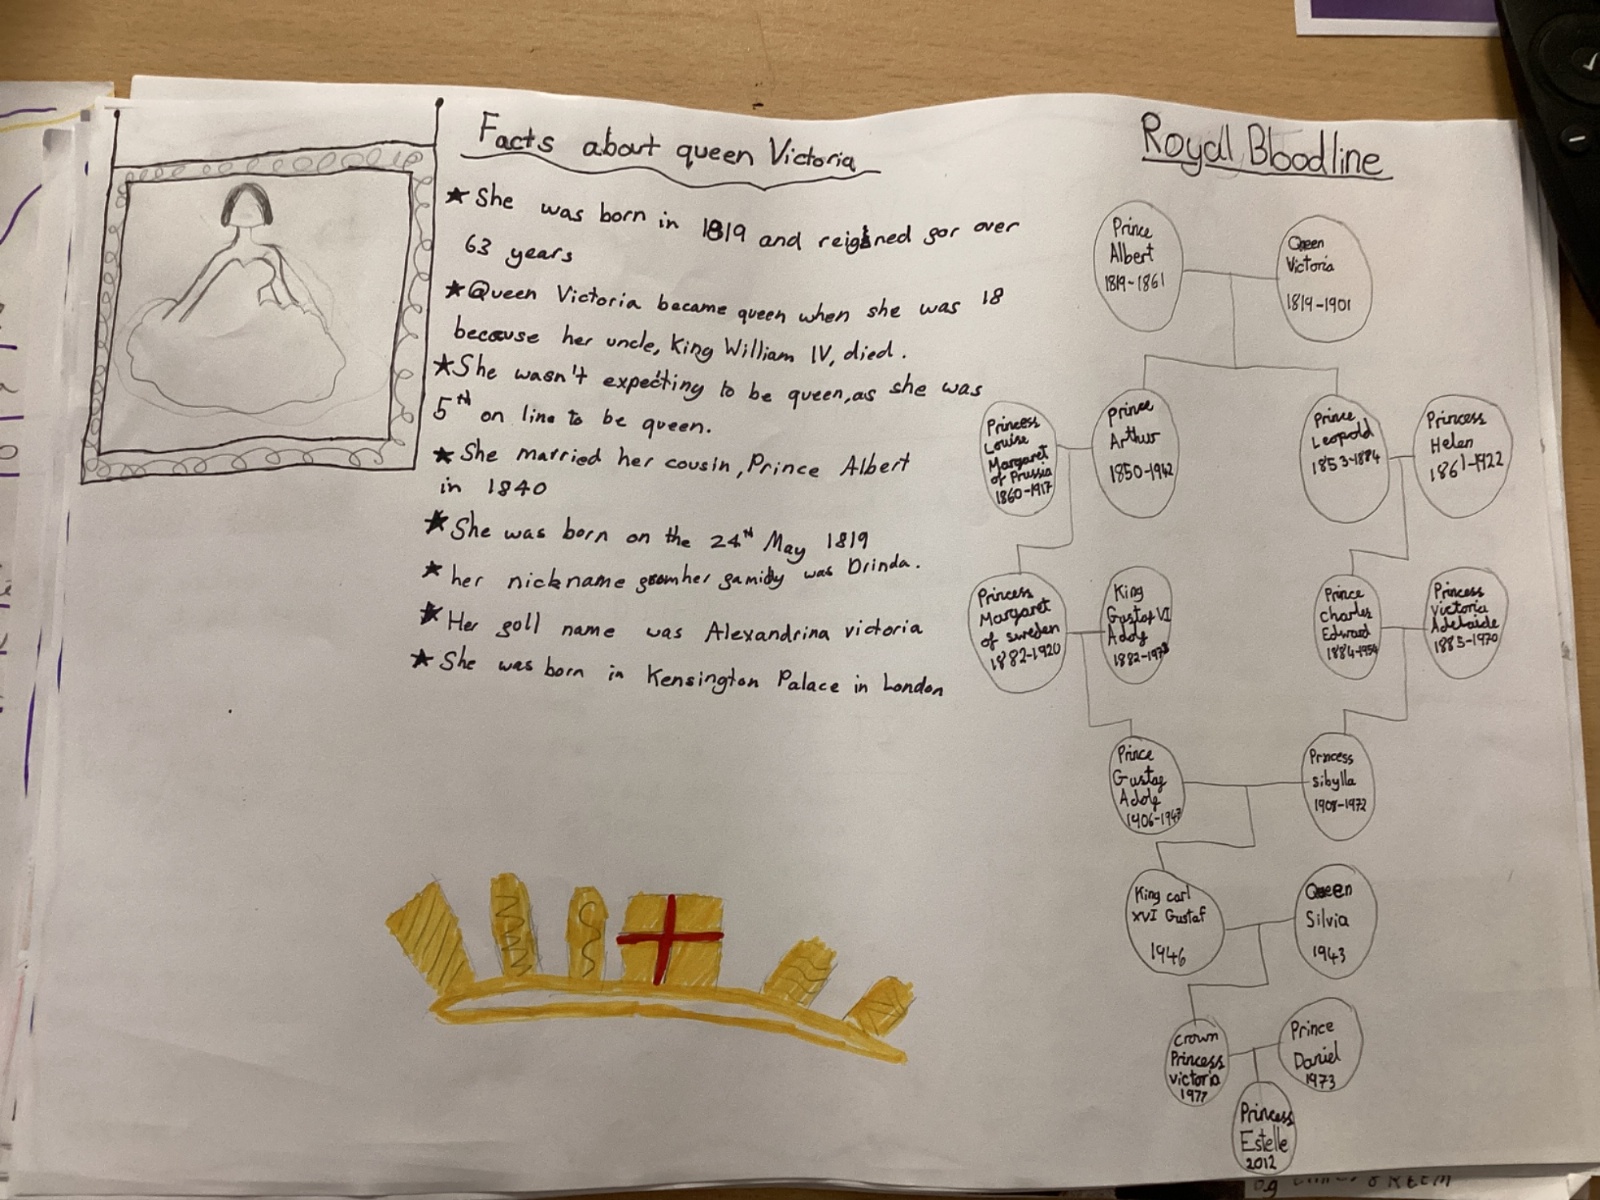 Facts about queen Victoria
★ She was born in 1819 and reigned gor over
63 years
★ Queen Victoria became queen when she was 18
because her uncle, King William IV, died.
★ She wasn't expecting to be queen, as she was
5th on line to be queen.
★ She married her cousin, Prince Albert
in 1840
★ She was born on the 24th May 1819
★ her nickname grom her gamidy was Drinda.
★ Her goll name was Alexandrina victoria
★ She was born in Kensington Palace in London
Royal Bloodline
Prince
Albert
1819-1861
Queen
Victoria
1819-1901
Princess
Louise
Margaret
of Prussia
1860-1917
Prince
Arthur
1850-1942
Prince
Leopold
1853-1884
Princess
Helen
1861-1922
Princess
Margaret
of sweden
1882-1920
King
Gustaf VI
Adolg
1882-1973
Prince
Charles
Edward
1884-1954
Princess
Victoria
Adelaide
1885-1970
Prince
Gustag
Adolg
1906-1947
Princess
Sibylla
1908-1972
King carl
XVI Gustaf
1946
Queen
Silvia
1943
Crown
Princess
victoria
1977
Prince
Daniel
1973
Princess
Estelle
2012